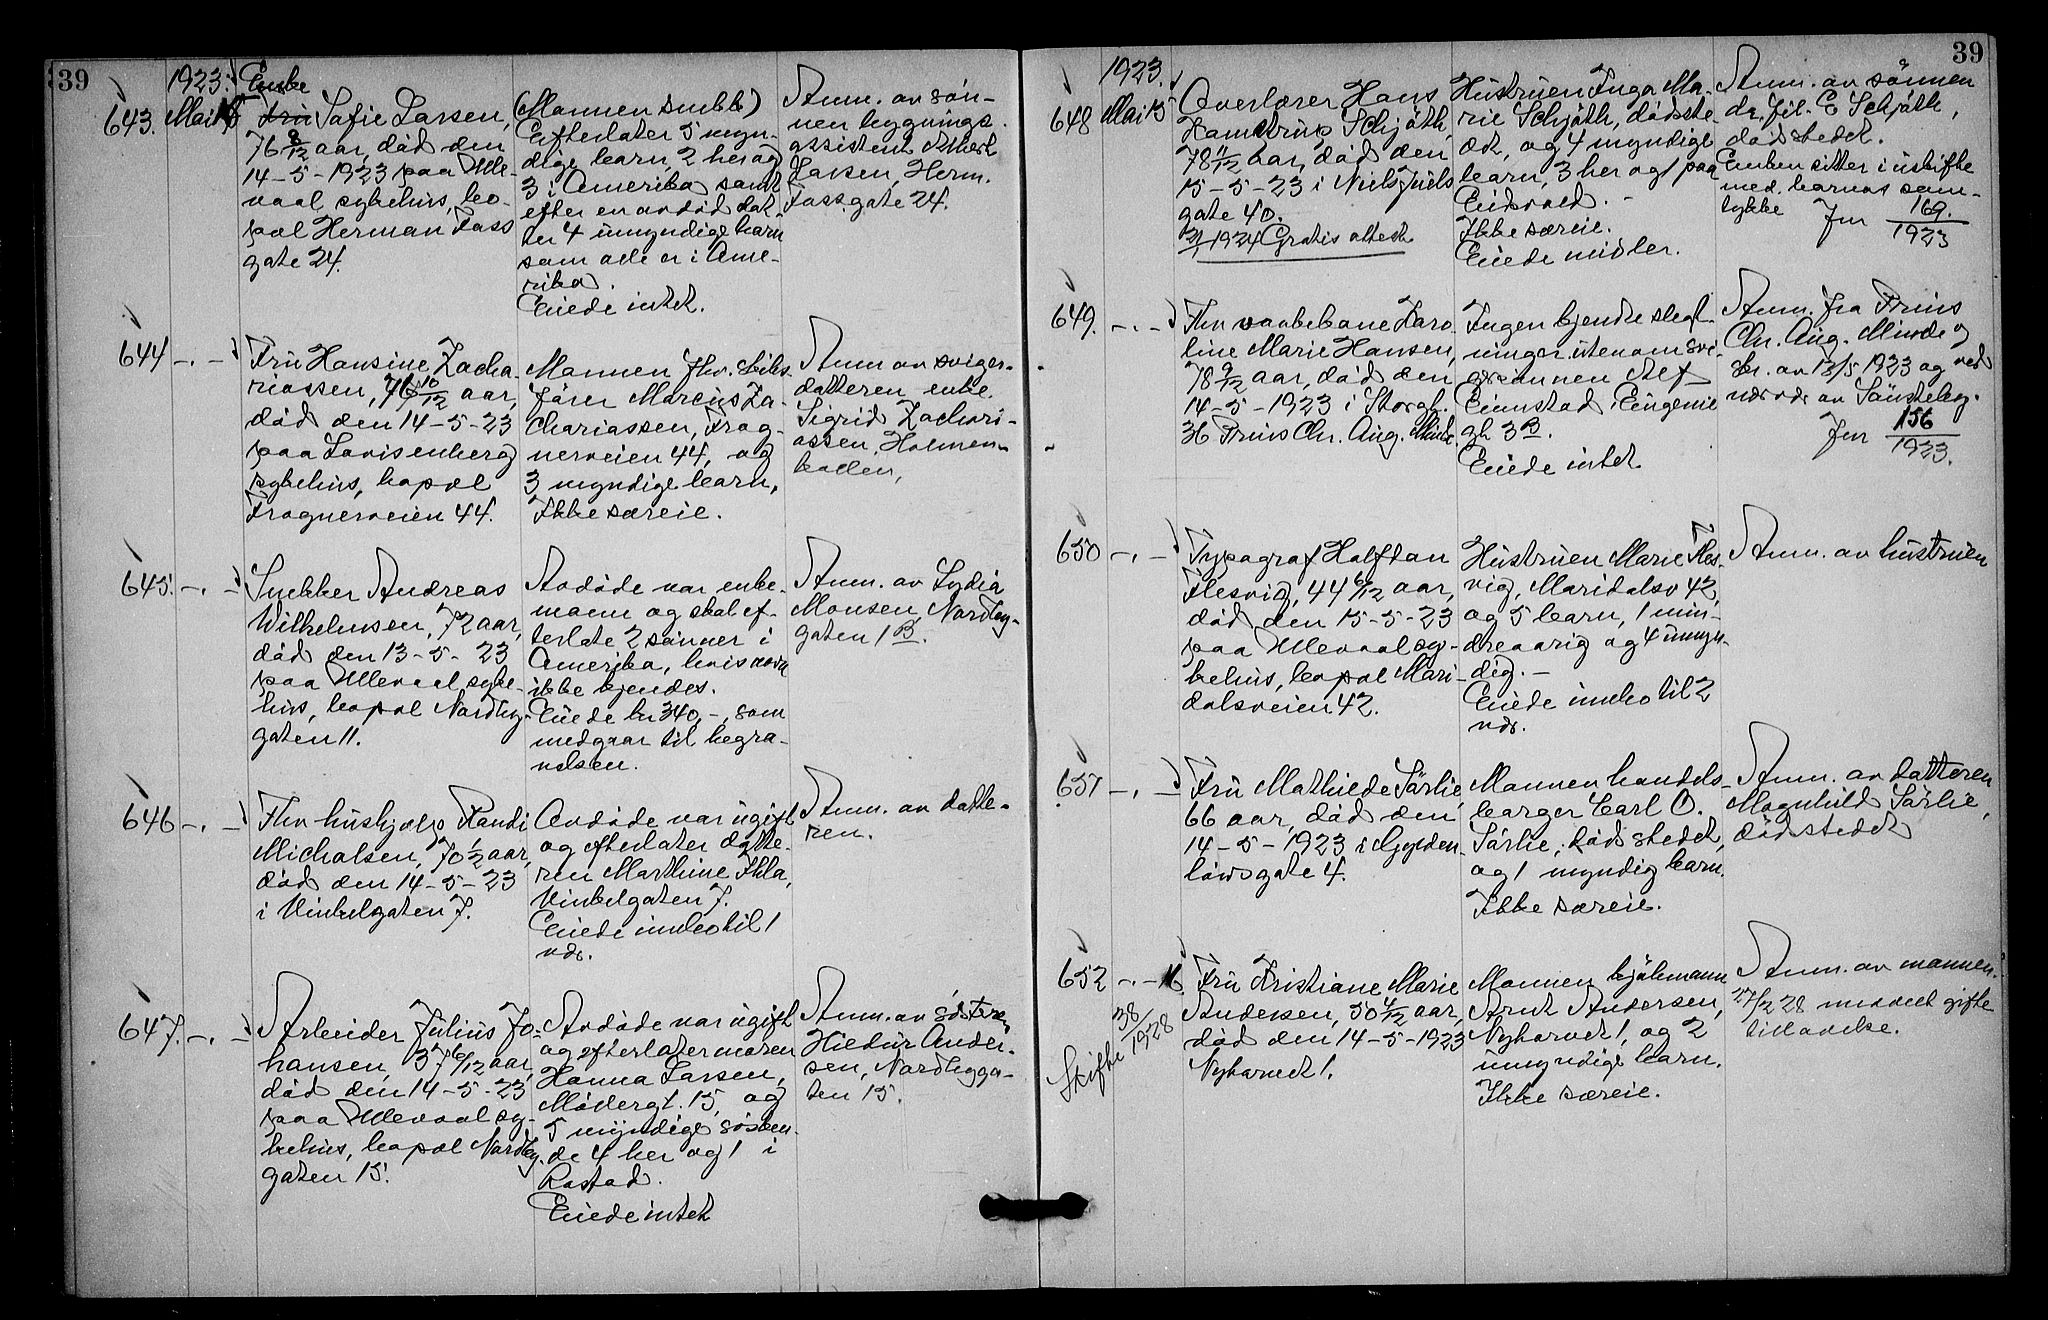 39
1923.
Enke
643. Mai 15 Fru Sofie Larsen,
76 8/12 aar, död den
14-5-1923 paa Ulle-
vaal sykehus, bo-
pæl Herman Foss
gate 24.
(Mannen død)
Efterlater 5 myn-
dige barn, 2 her og
3 i Amerika samt
efter en avdöd dat-
ter 4 umyndige barn
som alle er i Ame-
rika.
Eiiede intet.
Anm. av søn-
nen bygnings-
assistent
Larsen, Herm.
Fossgate 24.
644 -.-
Fru Hansine Zacha-
riassen, 76 10/12 aar,
död den 14-5-23
paa Lovisenberg
sykehus, bopæl
Frognerveien 44.
Mannen fhv. skibs-
fører Marcus Za-
chariassen, Frog-
nerveien 44, og
3 myndige barn,
Ikke særeie.
Anm av sviger-
datteren enke
Sigrid Zachari-
assen, Holmen-
kollen,
645. -.-
Snekker Andreas
Wilhelmsen, 72 aar,
död den 13-5-23
paa Ullevaal syke-
hus, bopæl Nordby-
gaten 11.
Avdöde var enke-
mann og skal ef-
terlate 2 sønner i
Amerika, hvis navn
ikke kjendes.
Eiiede kr 340,-, som
medgaar til begra-
velsen.
Anm. av Lydia
Monsen, Nordby-
gaten 1 B.
646 -.-
Fhv hushjælp Randi
Michalsen, 70 1/2 aar,
död den 14-5-23
i Vinkelgaten 7.
Avdöde var ugift
og efterlater datte-
ren Marthine Ihla,
Vinkelgaten 7.
Eiiede innbo til 1
vds.
Anm. av datte-
ren.
647. -.-
Arbeider Julius Jo-
hansen, 37 6/12 aar,
död den 14-5-23
paa Ullevaal sy-
kehus, bopæl Nordby-
gaten 15.
Avdöde var ugift
og efterlater moren
Hanna Larsen,
Mødergt. 15, og
5 myndige søsken-
de 4 her og 1 i
Rostad.
Eiiede intet
Anm. av søsteren
Hildur Ander-
sen, Nordbyga-
ten 15.
39
1923.
648 Mai 15
Overlærer Hans
Hamstrup Schjöth,
78 11/12 aar, død den
15-5-23 i Niels Juels
gate 40.
1924 Gratis attest
Hustruen Inga Ma-
rie Schjöth, dødste-
det, og 4 myndige
barn, 3 her og 1 paa
Eidsvold.-
Ikke særeie.
Eiiede midler.
Anm. av sönnen
dr. fil. E Schjöth,
dødstedet.
Enken sitter i uskifte
med barnas sam-
tykke
Jnr 169.
1923
649. -.-
Fhv vaskekone Karo-
line Marie Hansen,
78 9/12 aar, död den
14-5-1923 i Storgt.
36 Prins Chr. Aug. Minde.
Ingen kjendte slegt-
ninger utenom svi-
gersönnen Alf
Eiunstad, Eugenie
gt 3 B.
Eiiede intet
Anm. fra Prins
Chr. Aug. Minde og
skr. av 15/5 1923 og ved
Jnr 156
1923.
650 -.-
Typograf Halfdan
Flesvig, 44 6/12 aar,
död den 15-5-23
paa Ullevaal sy-
kehus, bopæl Mari-
dalsveien 42.
Hustruen Marie Fles-
vig, Maridalsv 42,
og 5 barn, 1 min-
dreaarig og 4 umyn-
dig.-
Eiiede innbo til 2
vds.
Anm. av hustruen
651 -.-
Fru Mathilde Sørlie,
66 aar, död den
14-5-1923 i Gylden-
løvsgate 4.
Mannen handels-
borger Carl O.
Sørlie, dødstedet,
og 1 myndig barn.
Ikke særeie.
Anm. av datteren
Magnhild Sørlie,
dødstedet
652 -.- 16.
Skifte 38/1928
Fru Kristiane Marie
Andersen, 50 4/12 aar,
död den 14-5-1923
Nyhavnet 1.
Mannen kjölmann
Arnt Andersen,
Nyhavnet 1, og 2
umyndige barn.
Ikke særeie.
Anm. av mannen.
27/2 28 minnet gifte
tillavelse.